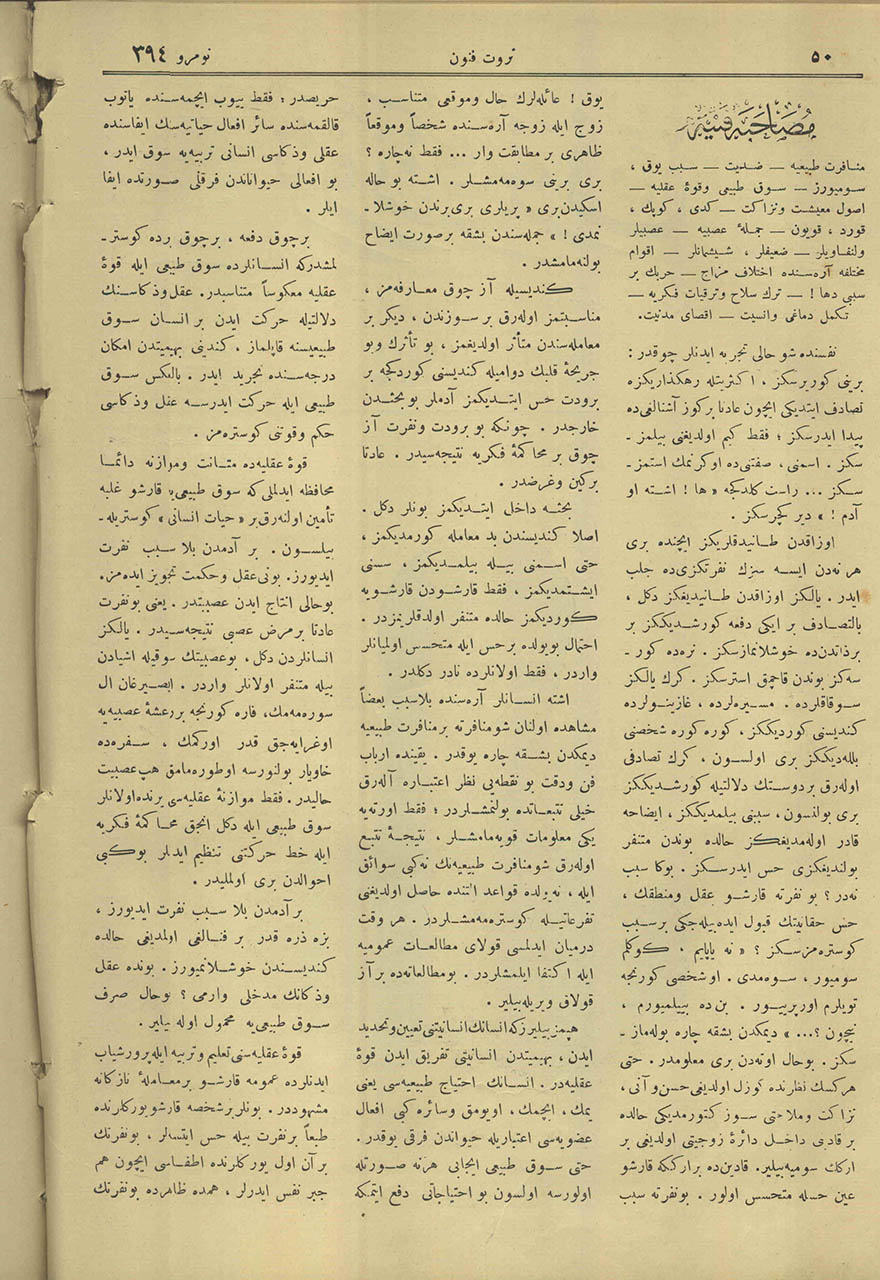 ٥٠
ثروت فنون
نومرو ٣٩٤
مصاحبۀ فنیه
منافرت طبیعیه — ضدیت — سبب یوق ،
سومیورز — سوق طبیعی وقوۀ عقلیه —
اصول معیشت ونزاکت — کدی ، کوپك ،
قورد ، قویون — جملۀ عصبیه — عصبیلر
ولنفاویلر — ضعیفلر ، شیشمانلر — اقوام
مختلفه آره‌سنده اختلاف مزاج — حربك بر
سببی دها ! — ترك سلاح وترقیات فکریه —
تکمل دماغی وانسیت — اقصای مدنیت.
نفسنده شو حالی تجربه ایدنلر چوقدر :
برینی کوربرسکز ، اکثریتله رهکذاریکزه
تصادف ایتدیکی ایچون عادتا برکوز آشنالغی‌ده
پیدا ایدرسکز ؛ فقط کیم اولدیغنی بیلمز ـ
سکز . اسمنی ، صفتنی‌ده اوکرنمك استمز ـ
سکز ... راست کلدکجه « ها ! اشته او
آدم ! » دیر کچرسکز .
اوزاقدن طانیدقلریکز ایچنده بری
هر نه‌دن ایسه سزك نفرتکزی‌ده جلب
ایدر . یالکز اوزاقدن طانیدیغکز دکل ،
بالتصادف بر ایکی دفعه کورشدیککز بر
برذاتدن‌ده خوشلانمازسکز . نره‌ده کور ـ
سه‌کز بوندن قاچمق استرسکز . کرك یالکز
سوقاقلرده . مسیره‌لرده ، غازینولرده
کندیسنی کوردیککز ، کوره کوره شخصنی
بلله‌دیککز بری اولسون ، کرك تصادفی
اوله‌رق بردوستك دلالتیله کورشدیککز
بری بولنسون ، سببنی بیلمدیککز ، ایضاحه
قادر اوله‌مدیغکز حالده بوندن متنفر
بولندیغکزی حس ایدرسکز . بوکا سبب
نه‌در ؟ بو نفرته قارشو عقل ومنطقك ،
حس حقانیتك قبول ایده‌بیله‌جکی برسبب
کوستره‌مزسکز ؟ « نه یاپایم ، کوکلم
سومیور ، سوه‌مدی . او شخصی کورنجه
تویلرم اورپرییور . بن‌ده بیلمیورم ،
نیچون ؟... » دیمکدن بشقه چاره بوله‌ماز ـ
سکز . بوحال اوته‌دن بری معلومدر . حتی
هرکسك نظرنده کوزل اولدیغی حسن و آنی ،
نزاکت وملاحتی سوز کتورمدیکی حالده
بر قادینی داخل دائرۀ زوجیتی اولدیغی بر
ارکك سومیه‌بیلیر. قادین‌ده برارککه قارشو
عین حسله متحسس اولور . بونفرته سبب
یوق ! عائله‌لرك حال وموقعی متناسب ،
زوج ایله زوجه آره‌سنده شخصاً وموقعاً
ظاهری بر مطابقت وار ... فقط نه‌چاره ؟
بری برینی سوه‌مه‌مشلر . اشته بو حاله
اسکیدن‌بری « پریلری بری‌برندن خوشلا ـ
نمدی ! » جمله‌سندن بشقه برصورت ایضاح
بولنه‌مامشدر .
کندیسیله آز چوق معارفه‌مز ،
مناسبتمز اوله‌رق بر سوزندن ، دیکر بر
معامله‌سندن متأثر اولدیغمز ، بو تأثرك وبو
جریحۀ قلبك دوامیله کندیسنی کوردکجه بر
برودت حس ایتدیکمز آدملر بوبحثدن
خارجدر . چونکه بو برودت ونفرت آز
چوق بر محاکمۀ فکریه نتیجه‌سیدر . عادتا
برکین وغرضدر .
بحثه داخل ایتدیکمز بونلر دکل .
اصلا کندیسندن بد معامله کورمدیکمز ،
حتی اسمنی بیله بیلمدیکمز ، سسنی
ایشتمدیکمز ، فقط قارشودن قارشویه
کوردیکمز حالده متنفر اولدقلریمزدر .
احتمال بویولده برحس ایله متحسس اولمیانلر
واردر ، فقط اولانلرده نادر دکلدر .
اشته انسانلر آره‌سنده بلاسبب بعضاً
مشاهده اولنان شومنافرته برمنافرت طبیعیه
دیمکدن بشقه چاره یوقدر . یقینده ارباب
فن ودقت بو نقطه‌یی نظر اعتباره آله‌رق
خیلی تتبعاتده بولنمشلردر ؛ فقط اورته‌یه
یکی معلومات قویه‌مامشلر ، نتیجۀ تتبع
اوله‌رق شومنافرت طبیعیه‌نك نه‌کبی سوائق
ایله ، نه‌یولده قواعد التنده حاصل اولدیغنی
تفرعاتیله کوستره‌مه‌مشلردر . هر وقت
درمیان ایدلمسی قولای مطالعات عمومیه
ایله اکتفا ایلمشلردر . بومطالعاته‌ده برآز
قولاق ویریله‌بیلیر .
هپمز بیلیرزکه انسانك انسانیتنی تعیین و تحدید
ایدن ، بهیمیتدن انسانیتی تفریق ایدن قوۀ
عقلیه‌در . انسانك احتیاج طبیعیه‌سی یعنی
یمك ، ایچمك ، اویومق وسائره کبی افعال
عضویه‌سی اعتباریله حیواندن فرقی یوقدر .
حتی سوق طبیعی ایجابی هرنه صورتله
اولورسه اولسون بو احتیاجاتی دفع ایتمکه
حریصدر ؛ فقط ییوب ایچمه‌سنده یاتوب
قالقمه‌سنده سائر افعال حیاتیه‌سنك ایفاسنده
عقلی وذکاسی انسانی تربیه‌یه سوق ایدر ،
بو افعالی حیواناندن فرقلی صورتده ایفا
ایلر .
برچوق دفعه ، برچوق یرده کوستر ـ
لمشدرکه انسانلرده سوق طبیعی ایله قوۀ
عقلیه معکوساً متناسبدر . عقل وذکاسنك
دلالتیله حرکت ایدن بر انسان سوق
طبیعیسنه قاپلماز ، کندینی بهیمیتدن امکان
درجه‌سنده تجرید ایدر . بالعکس سوق
طبیعی ایله حرکت ایدرسه عقل وذکاسی
حکم وقوتنی کوستره‌مز .
قوۀ عقلیه‌ده متانت وموازنه دائما
محافظه ایدلملی که سوق طبیعی‌یه قارشو غلبه
تأمین اولنه‌رق بر « حیات انسانی » کوستریله ـ
بیلسون . بر آدمدن بلا سبب نفرت
ایدیورز. بونی عقل وحکمت تجویز ایده‌مز.
بوحالی انتاج ایدن عصبیتدر . یعنی بونفرت
عادتا بر مرض عصبی نتیجه‌سیدر . یالکز
انسانلردن دکل ، بوعصبیتك سوقیله اشیادن
بیله متنفر اولانلر واردر . ایصیرغان ال
سوره‌مه‌مك، فاره کورنجه بررعشۀ عصبیه‌یه
اوغرایه‌جق قدر اورکمك ، سفره‌ده
خاویار بولنورسه اوطوره‌مامق هپ عصبیت
حالیدر . فقط موازنۀ عقلیه‌سی یرنده اولانلر
سوق طبیعی ایله دکل انجق محاکمۀ فکریه
ایله خط حرکتنی تنظیم ایدلر بوکبی
احوالدن بری اولملیدر .
برآدمدن بلا سبب نفرت ایدیورز ،
بزه ذره قدر بر فنالغی اولمدیغی حالده
کندیسندن خوشلانمیورز. بونده عقل
وذکانك مدخلی وارمی ؟ بوحال صرف
سوق طبیعی‌یه محمول اوله بیلیر .
قوۀ عقلیه‌سنی تعلیم و تربیه ایله پرورشیاب
ایدنلرده عمومه قارشو بر معاملۀ نازکانه
مشهوددر . بونلر بر شخصه قارشو یورکلرنده
طبعاً بر نفرت بیله حس ایتسه‌لر ، بونفرتك
بر آن اول یورکلرنده اطفاسی ایچون هم
جبر نفس ایدرلر ، همده ظاهرده بونفرتك